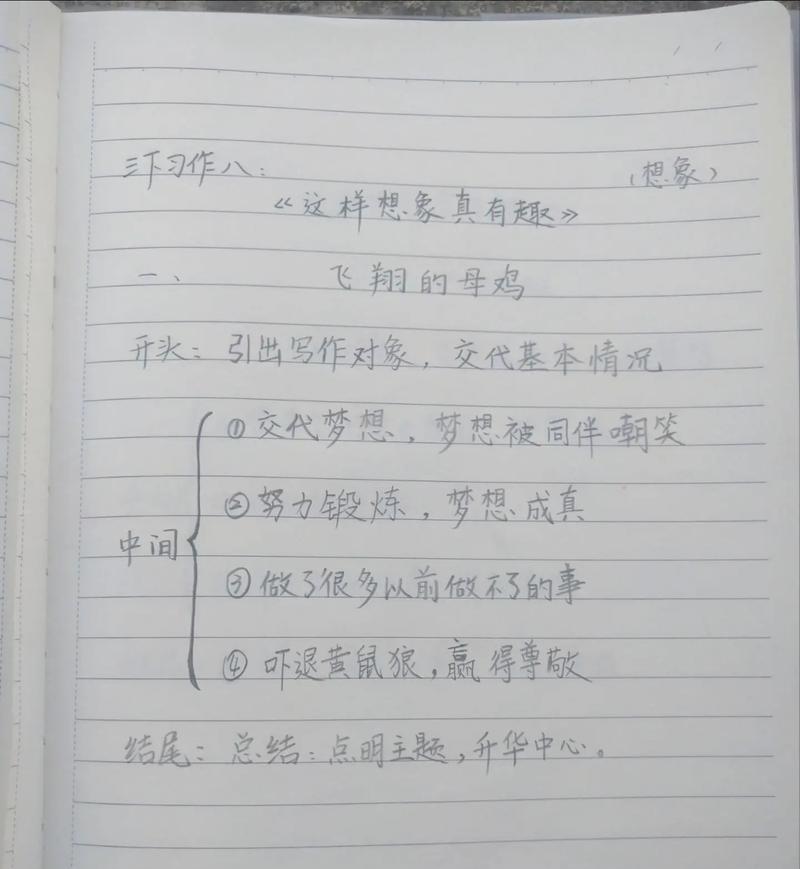 三下习作八：
（想象）
《这样想象真有趣》
一、 飞翔的母鸡
开头：引出写作对象，交代基本情况
①交代梦想，梦想被同伴嘲笑
②努力锻炼，梦想成真
中间
③做了很多以前做不了的事
④吓退黄鼠狼，赢得尊敬
结尾：总结：点明主题，升华中心。